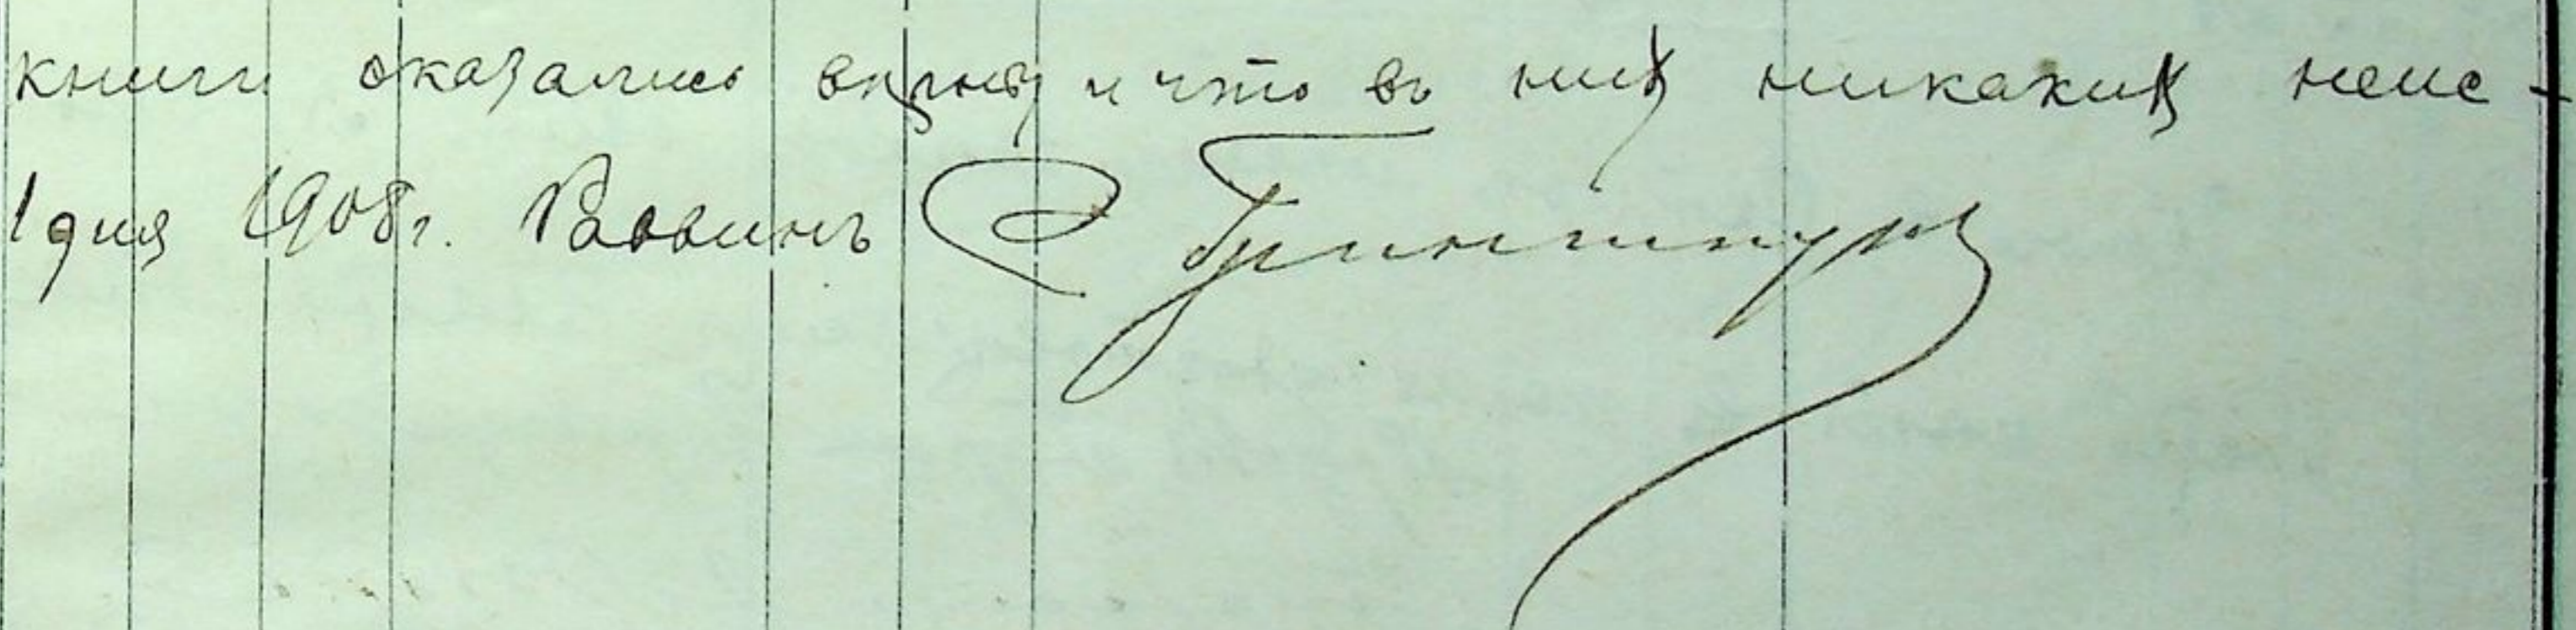 книги оказались вѣрны и что въ нихъ никакихъ неис-
1 дня 1908 г. Раввинъ Гриншпунъ